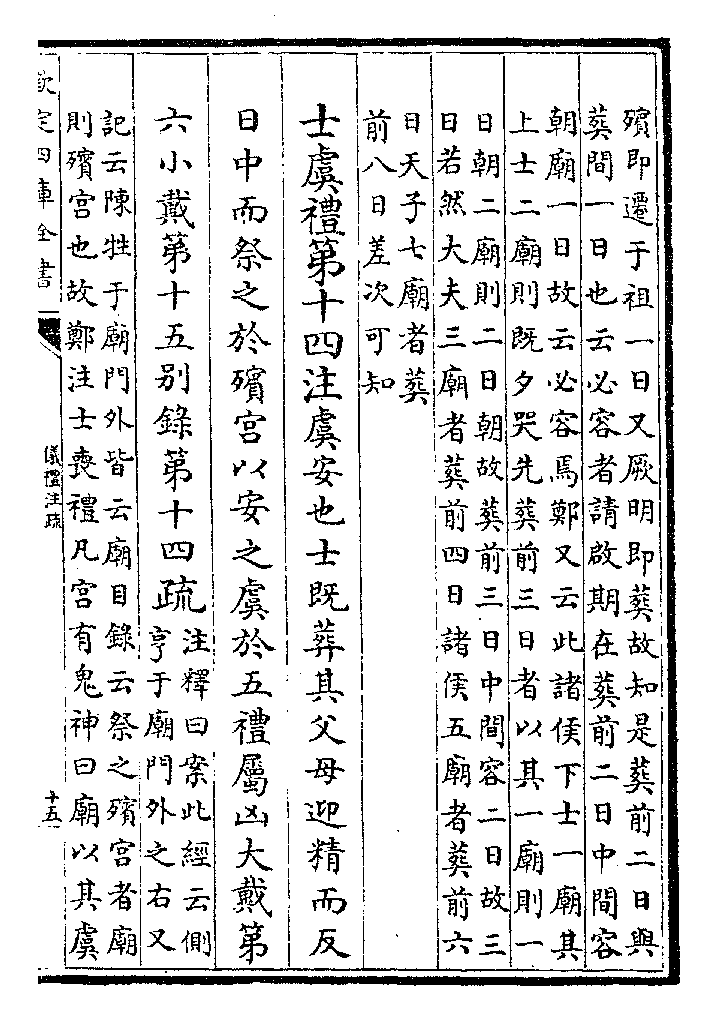 殯即遷于祖一日又厥明即葬故知是葬前二日與
葬間一日也云必容者請啟期在葬前二日中間容
朝廟一日故云必容焉鄭又云此諸侯下士一廟其
上士二廟則既夕哭先葬前三日者以其一廟則一
日朝二廟則二日朝故葬前三日中間容二日故三
日若然大夫三廟者葬前四日諸侯五廟者葬前六
日天子七廟者葬
前八日差次可知
士虞禮第十四注虞安也士既葬其父母迎精而反
日中而祭之於殯宮以安之虞於五禮屬凶大戴第
六小戴第十五别錄第十四疏
注釋曰案此經云側
亨于廟門外之右又
記云陳牲于廟門外皆云廟目錄云祭之殯宮者廟
則殯宮也故鄭注士喪禮凡宮有鬼神曰廟以其虞
欽定四庫全書
儀禮注疏
十五